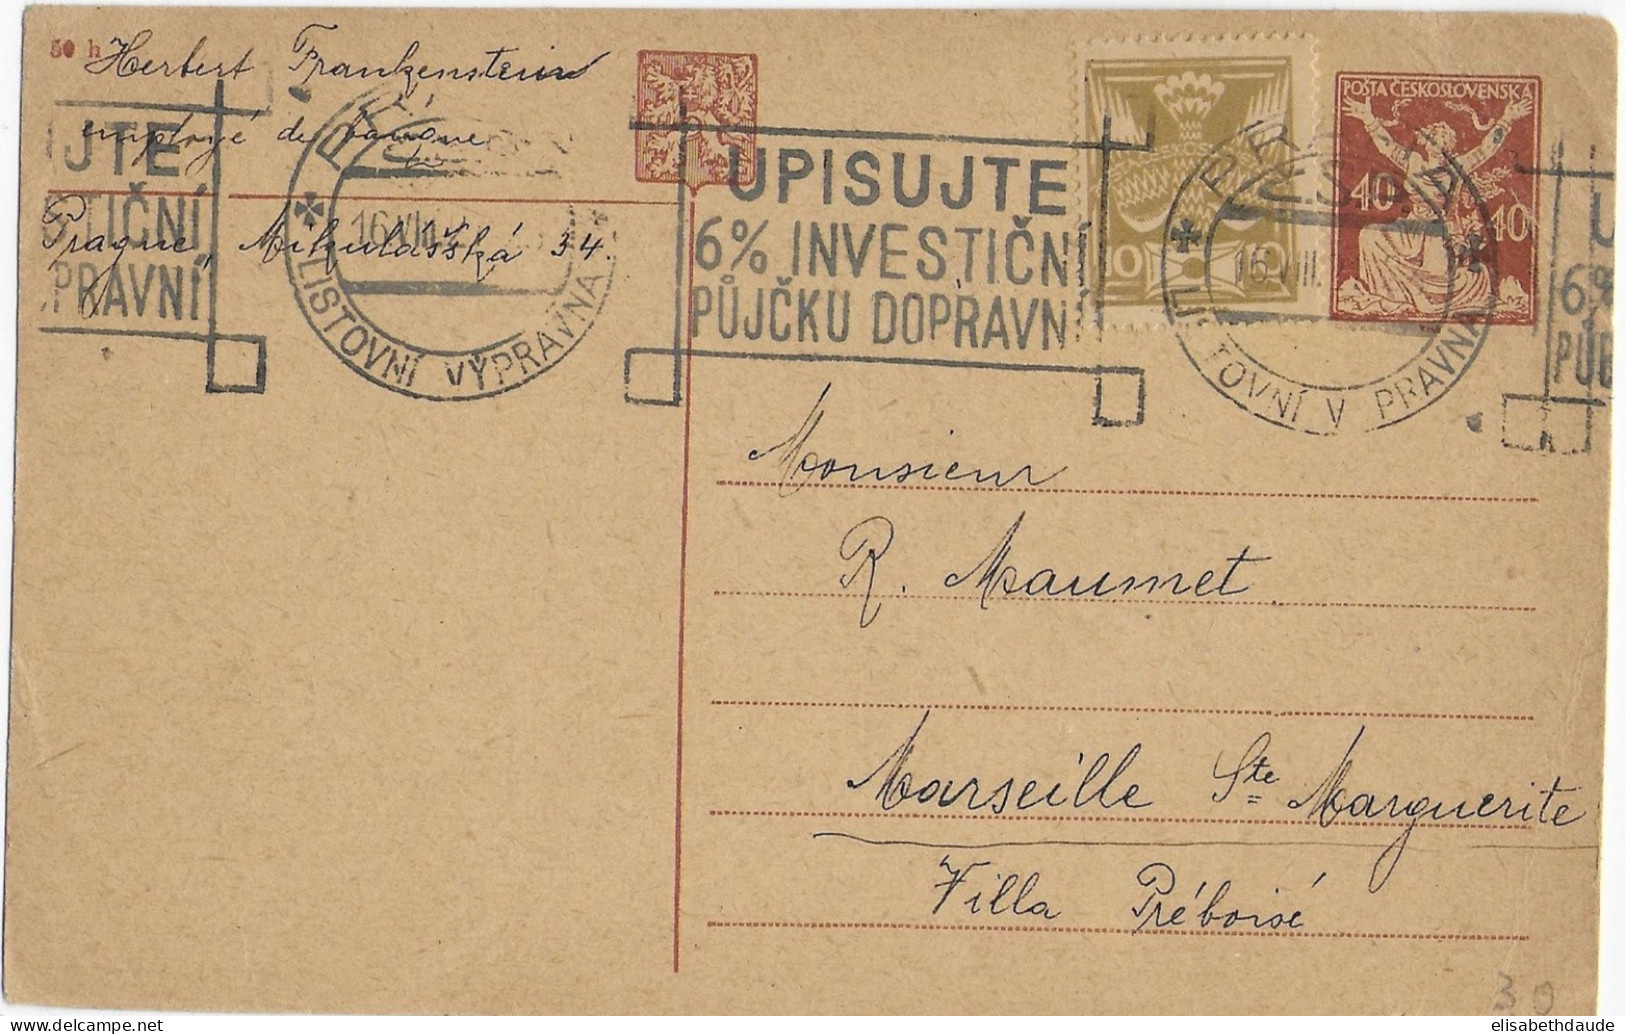 50 h
Herbert Frankenstein
employé de banque
Prague, Mikulášská 34.
JTE
TIČNÍ
PRAVNÍ
16.VIII
LISTOVNÍ VÝPRAVNA
UPISUJTE
6% INVESTIČN
PŮJČKU DOPRAVN
10 10
POŠTA ČESKOSLOVENSKÁ
40 40
PRAHA
16.VIII.
LISTOVNÍ V PRAVNA
U
6%
PŮJ
Monsieur
R. Maumet
Marseille Ste Marguerite
Villa Préboisé
30
elisabethdaude